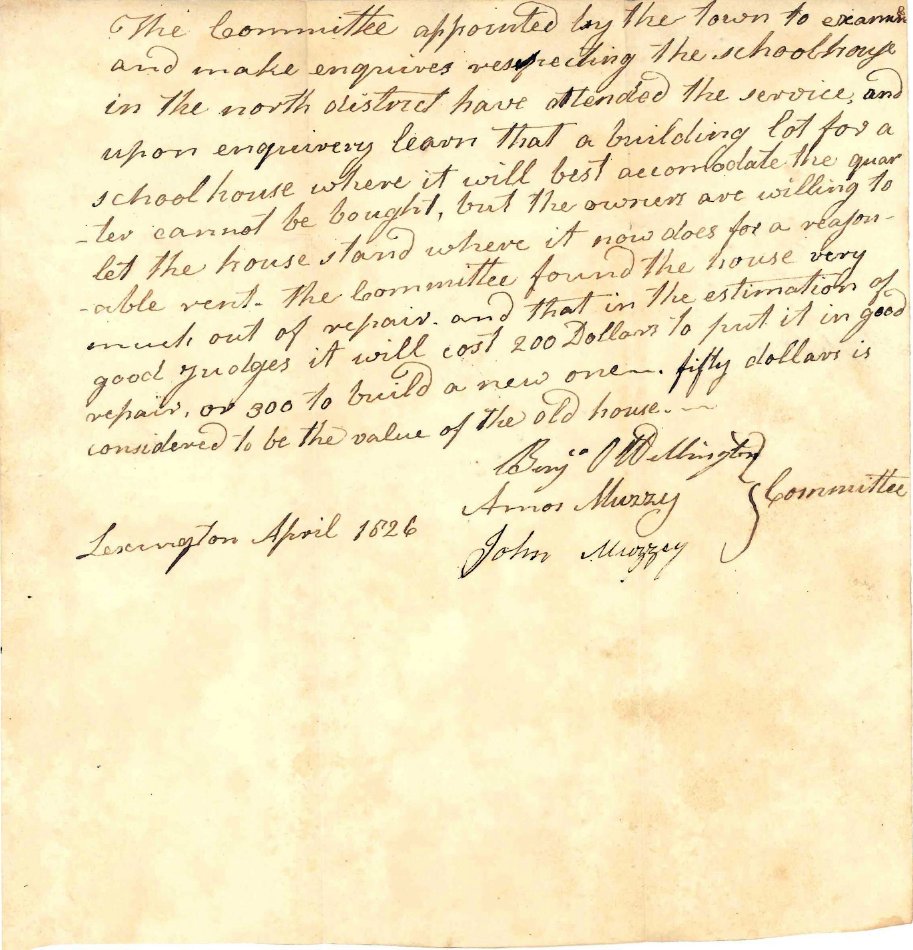 The Committee appointed by the town to examine
and make enquires respecting the schoolhouse
in the north district have attended the service, and
upon enquirery learn that a building lot for a
school house where it will best accomodate the quar
-ter cannot be bought, but the owners are willing to
let the house stand where it now does for a reason-
-able rent. the Committee found the house very
much out of repair. and that in the estimation of
good Judges it will cost 200 Dollars to put it in good
repair, or 300 to build a new one—. fifty dollars is
considered to be the value of the old house.—
Benjn O Wellington
Amos Muzzy } Committee
Lexington April 1826
John Muzzey